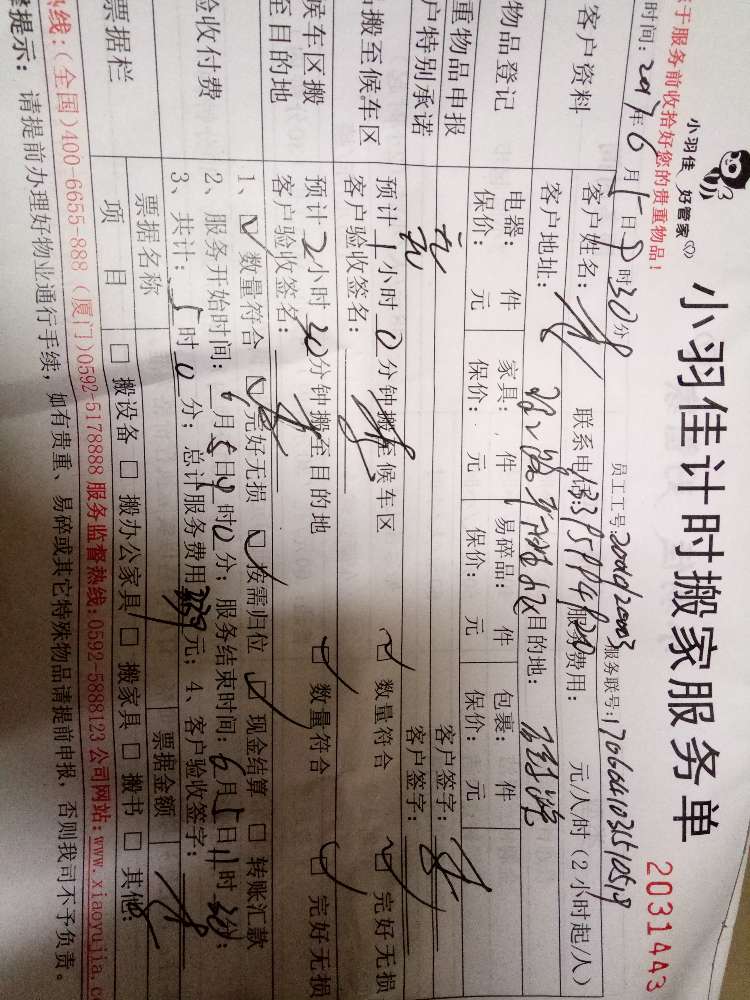 小羽佳 好管家
小羽佳计时搬家服务单
2031443
于服务前收拾好您的贵重物品！
员工工号: 服务联号:
时间:2017年6月5日9时30分
客户资料
客户姓名: 联系电话: 服务费用: 元/人/时(2小时起/人)
客户地址: 目的地:
物品登记
电器: 件 家具: 件 易碎品: 件 包裹: 件
保价: 元 保价: 元 保价: 元 保价: 元
重物品申报 客户签字:
户特别承诺 客户签字:
搬至候车区
预计1小时0分钟搬至候车区 数量符合 完好无损
客户验收签名:
候车区搬
至目的地
预计2小时30分钟搬至目的地 数量符合 完好无损
客户验收签名:
验收付费
1、 数量符合 完好无损 按需归位 现金结算 转账汇款
2、服务开始时间:6月5日9时0分; 服务结束时间:6月5日11时30分;
3、共计:5时0分; 总计服务费用 元; 4、客户验收签字:
票据栏
票据名称 票据金额
项目 搬设备 搬办公家具 搬家具 搬书 其他:
热线:(全国)400-6655 888 (厦门)0592-5178888 服务监督热线:0592-5888123 公司网站:www.xiaoyujia.c
提示: 请提前办理好物业通行手续,如有贵重、易碎或其它特殊物品请提前申报,否则我司不予负责。